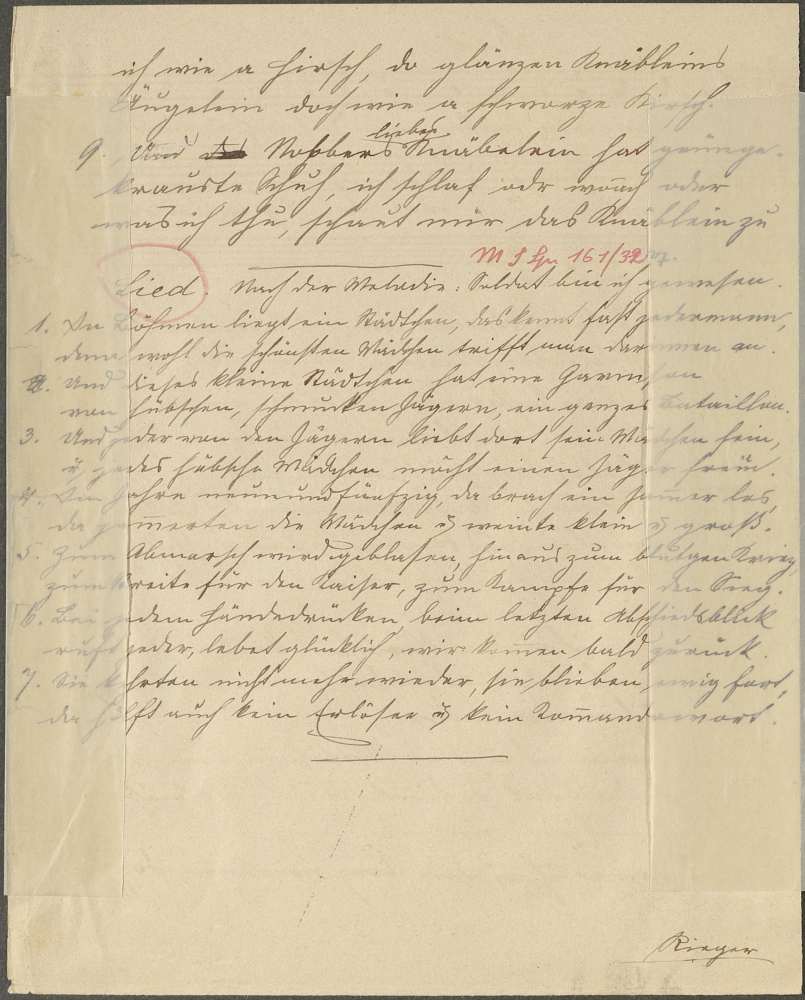 ich wie a Hirsch, da glänzen Knäbleins
Äugelein doch wie a schwarze Kirsch.
9. Und Nobbers liebes Knäbelein hat grüne ge-
krauste Schuh, ich schlaf odr wåch oder
was ich thu, schaut mir das Knäblein zu
M S Lpr 161/32
Lied. Nach der Melodie: Soldat bin ich gewesen.
1. In Böhmen liegt ein Städtchen, das kennt fast jedermann,
denn wohl die schönsten Mädchen trifft man darinnen an.
2. Und dieses kleine Städtchen hat eine Garnison
von hübschen, schmucken Jägern, ein ganzes Bataillon.
3. Und jeder von den Jägern liebt dort sein Mädchen fein,
u. jedes hübsche Mädchen möcht einen Jäger frein.
4. Im Jahre neunundfünfzig, da brach ein Jammer los,
da jammerten die Mädchen u. weinte klein u. groß.
5. Zum Abmarsch wird geblasen, hinaus zum blutgen Krieg,
zum Streite für den Kaiser, zum Kampfe für den Sieg.
6. Bei jedem Händedrücken, beim letzten Abschiedsblick
ruft jeder, lebet glücklich, wir kommen bald zurück.
7. Sie kehrten nicht mehr wieder, sie blieben ewig fort,
da hilft auch kein Erlöser u. kein Kommandowort.
Rieger